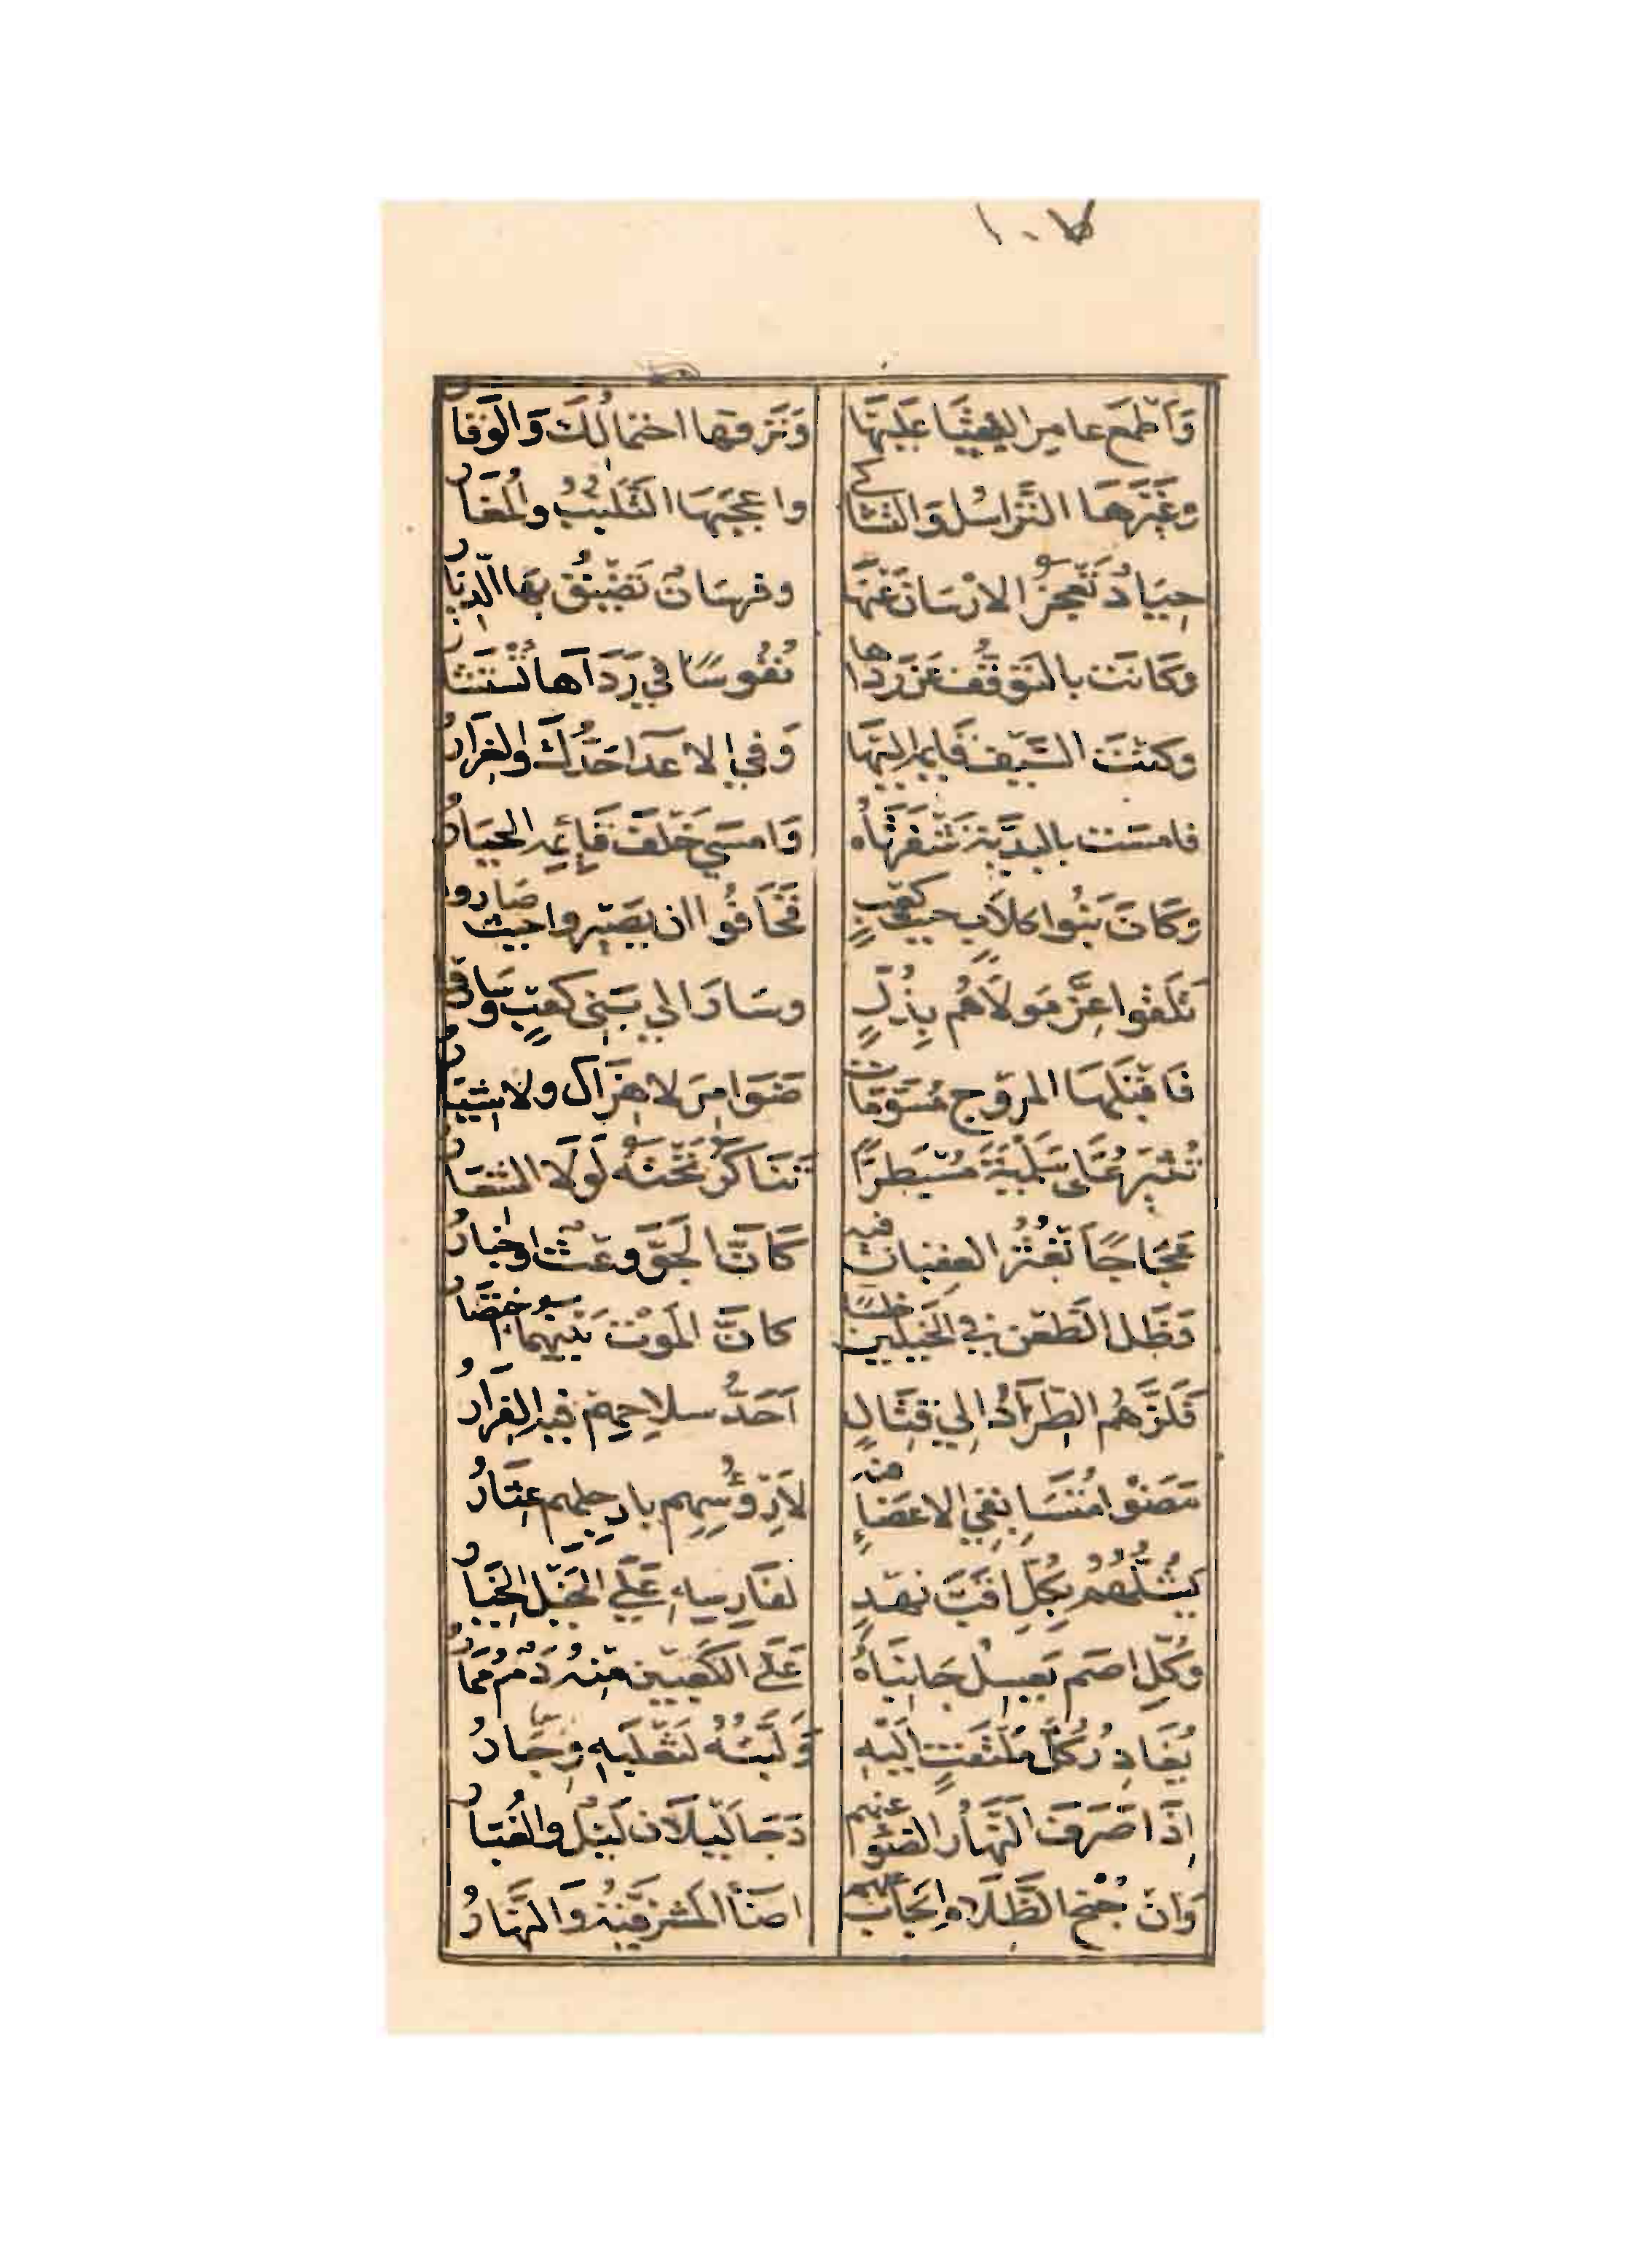 وَاَطْمَعَ عامر البُقيَا عَلَيْهَا وَنَزَّقها احتمالُكَ وَالوَقارُ
وغَيَّرَهَا التَّراسُل وَالتشاكي واعجَبَهَا التَّلبُّبُ والمُغَارُ
جِيَادٌ تَعْجَزُ الارْسَان عَنْهَا وفرسَانٌ تَضِيْقُ بهَا الدِّيَارُ
وَكَانَت بالتَوَقُّف عَن رَدَاها نُفُوسًا في رَدَاهَا تُسْتَشَارُ
وكنتَ السَّيف قَايمه اليهَا وَفي الاعدَا حَدُّكَ والغِرَارُ
فامسَت بالبَدِيَّة شَفرَتَاهُ وَامسَي خَلفَ قَائِمِهِ الحِيَارُ
وَكَانَ بَنُوا كلابٍ حيث كَعْبٍ فَخَافُوا ان يَصِيروا حيث صَاروا
تَلَقَّوا عِزَّ مَولَاهُم بِذُلٍّ وسَارَ الي بَنِي كعبٍ وسَارُوا
فاقبَلَهَا المروج مُسَوَّمَاتٍ ضَوَامِرَ لا هِزَال ولا شِيَارُ
تُثِيرُ عَلى سَلَمْيَةَ مُسْبَطِرًّا تَنَاكَرُ تَحْتَهُ لَوْلَا الشّعَارُ
عَجَاجًا تَعْثُرُ العقبَان فيه كَانَّ الجَوَّ وَعْثٌ اوخبَارُ
وَظَلَّ الطَعْن في الخيلين خلسًا كانَّ المَوْت بَيْنهما اختِصَارُ
فَلَزَّهُم الطِّرَادُ الي قِتَالٍ اَحَدُّ سلاحِهم فيه الفِرَارُ
مَضَوْا مُتَسَابقي الاعضَاءِ منه لِاَرؤُسِهم بارجلهم عِثَارُ
يَشُلّهُمُ بِكُلِّ اقَبَّ نهدٍ لفارسِهِ عَلَي الخَيْل الخِيَارُ
وَكُلِّ اصَم يَعسِلُ جَانبَاهُ عَلَي الكَعْبَيْنِ مِنهُ دَمٌ مُمَارُ
يُغَادِرُ كُلَّ مُلْتَفِتٍ اِلَيْهِ وَلَبَّتُهُ لثَعْلَبِهِ وِجَارُ
اِذَا صَرَفَ النَّهَارُ الضوْءَ عنهم دَجَا لَيْلَان لَيْلٌ وَالغُبَارُ
وَان جُنْح الظَّلَام اِنْجَابَ عنهم اضَاْ المَشرَفِيَّةُ وَالنَّهَارُ